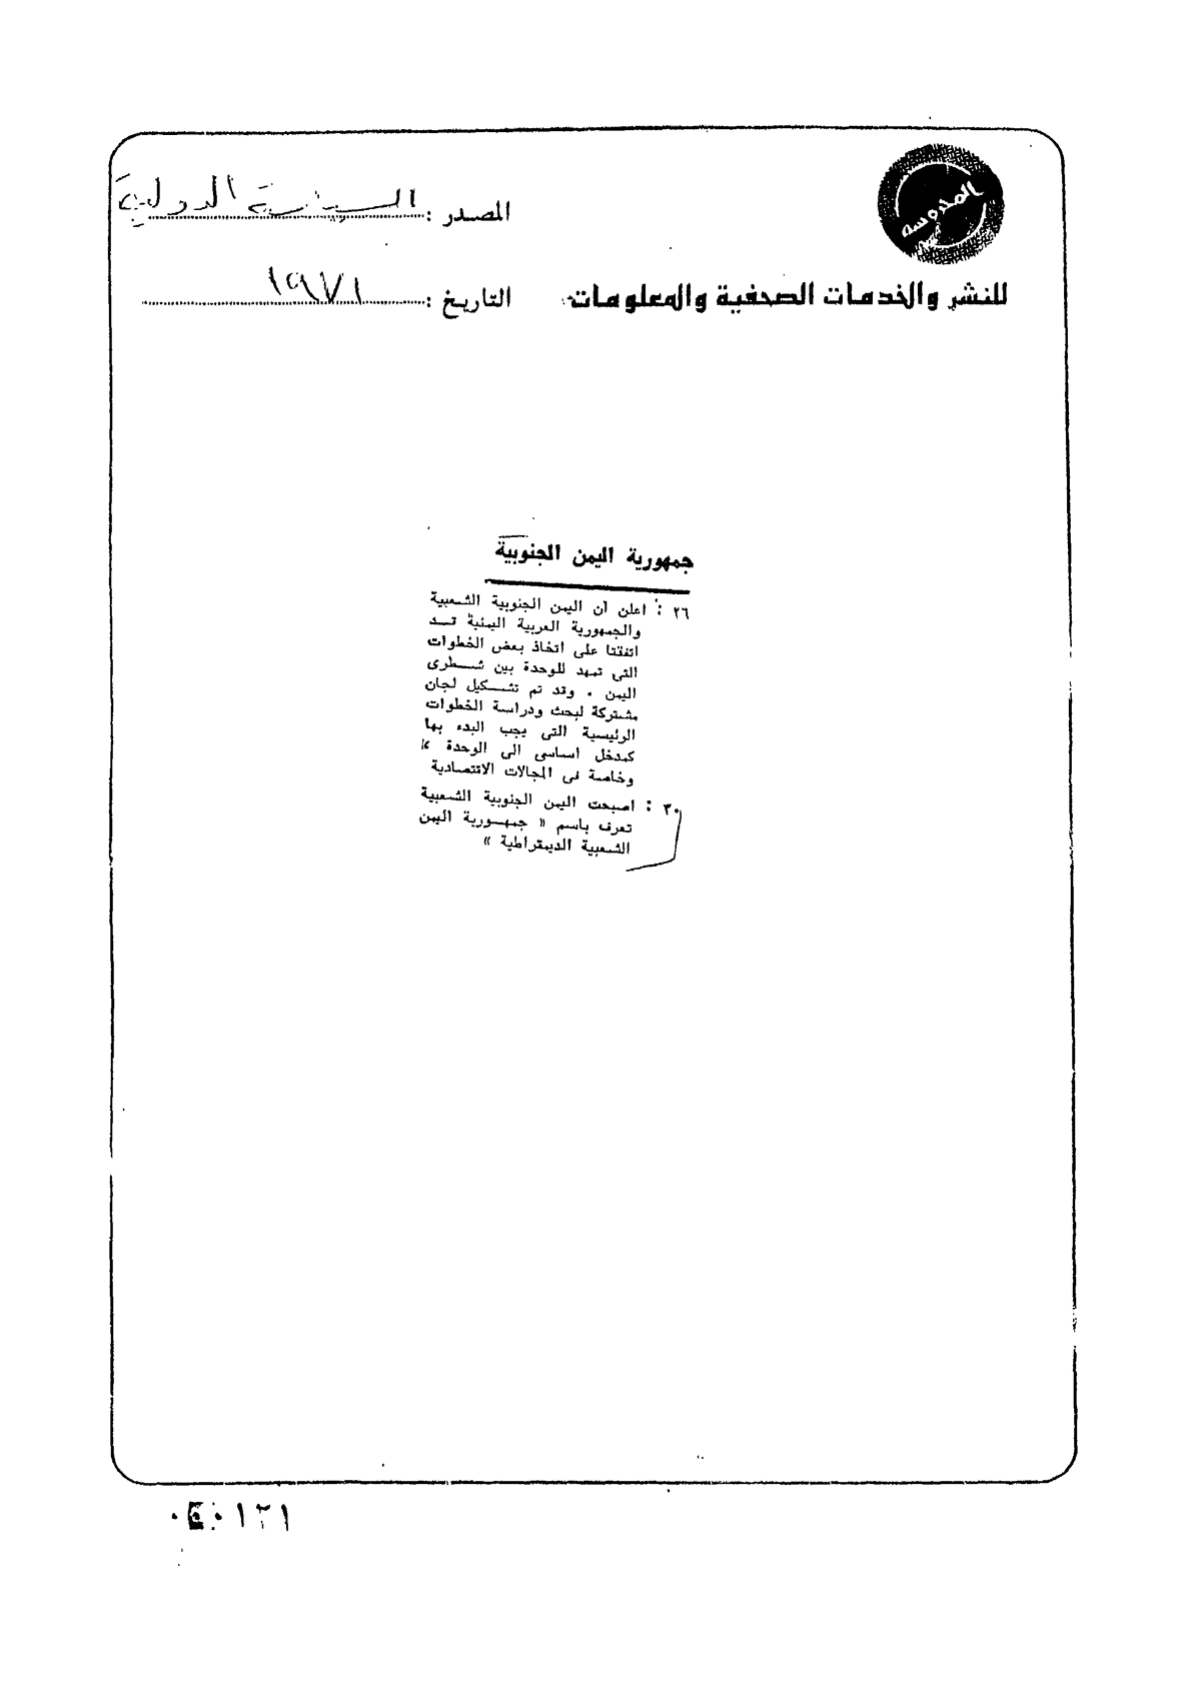 المحروسة
المصدر : السياسة الدولية
للنشر والخدمات الصحفية والمعلومات
التاريخ : ١٩٧١
جمهورية اليمن الجنوبية
٢٦ : اعلن أن اليمن الجنوبية الشعبية
والجمهورية العربية اليمنية قد
اتفقتا على اتخاذ بعض الخطوات
التى تمهد للوحدة بين شطرى
اليمن . وقد تم تشكيل لجان
مشتركة لبحث ودراسة الخطوات
الرئيسية التى يجب البدء بها
كمدخل اساسى الى الوحدة «
وخاصة فى المجالات الاقتصادية
٣٠ : اصبحت اليمن الجنوبية الشعبية
تعرف باسم « جمهورية اليمن
الشعبية الديمقراطية »